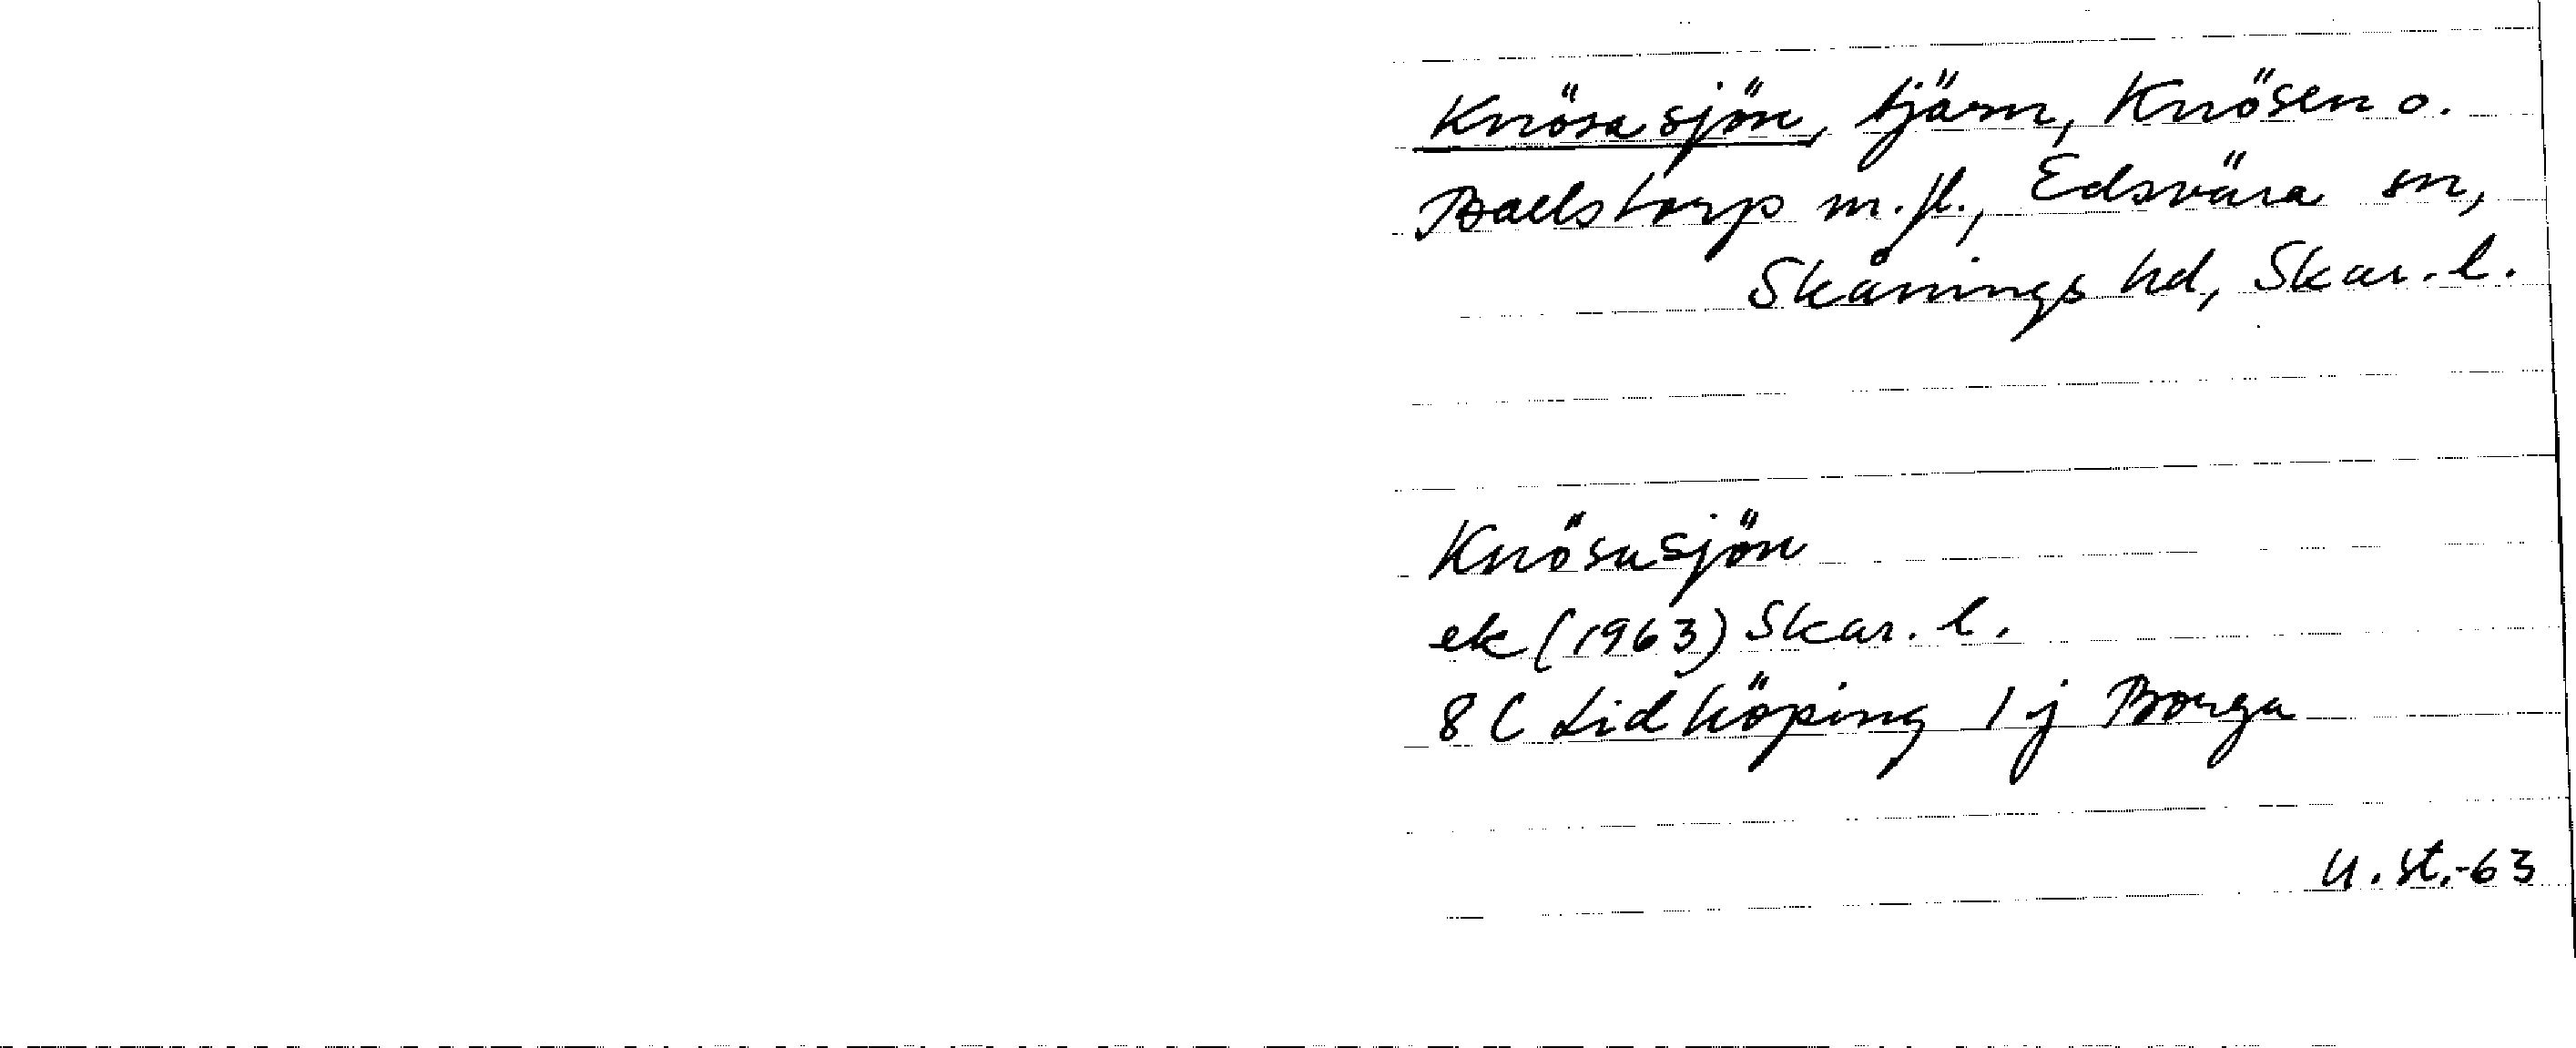 Knösasjön, tjärn, Knösen o.
Baelstorp m.fl., Edsvära sn,
Skånings hd, Skar. l.
Knösasjön
ek (1963) Skar. l.
8 C Lidköping 1 j Borga
U. St.-63